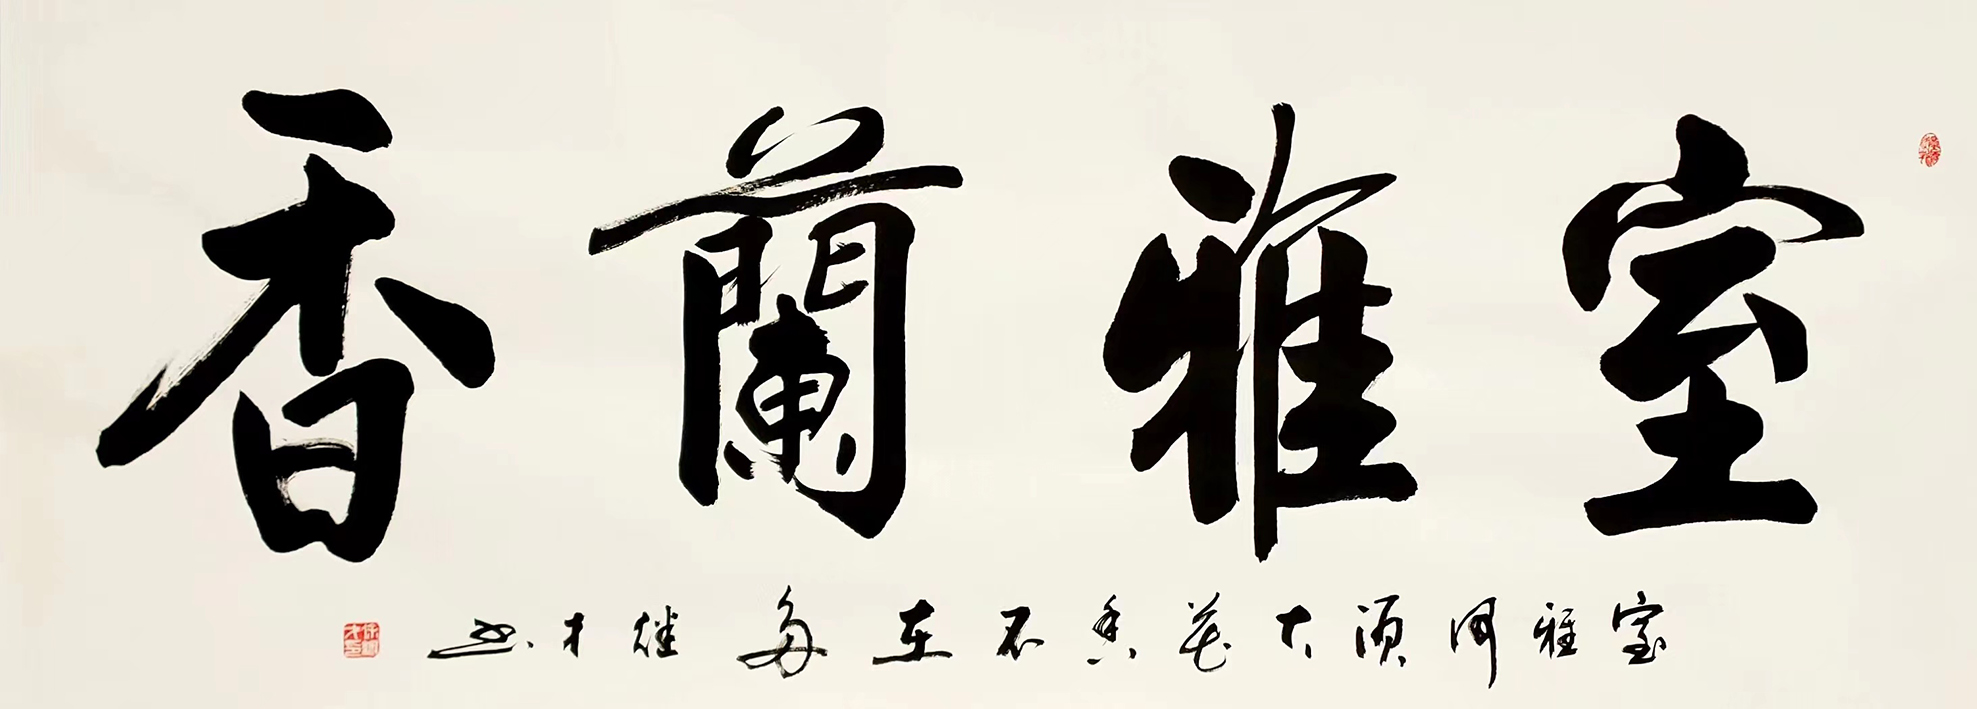 室雅蘭香
室雅何須大花香不在多 才书